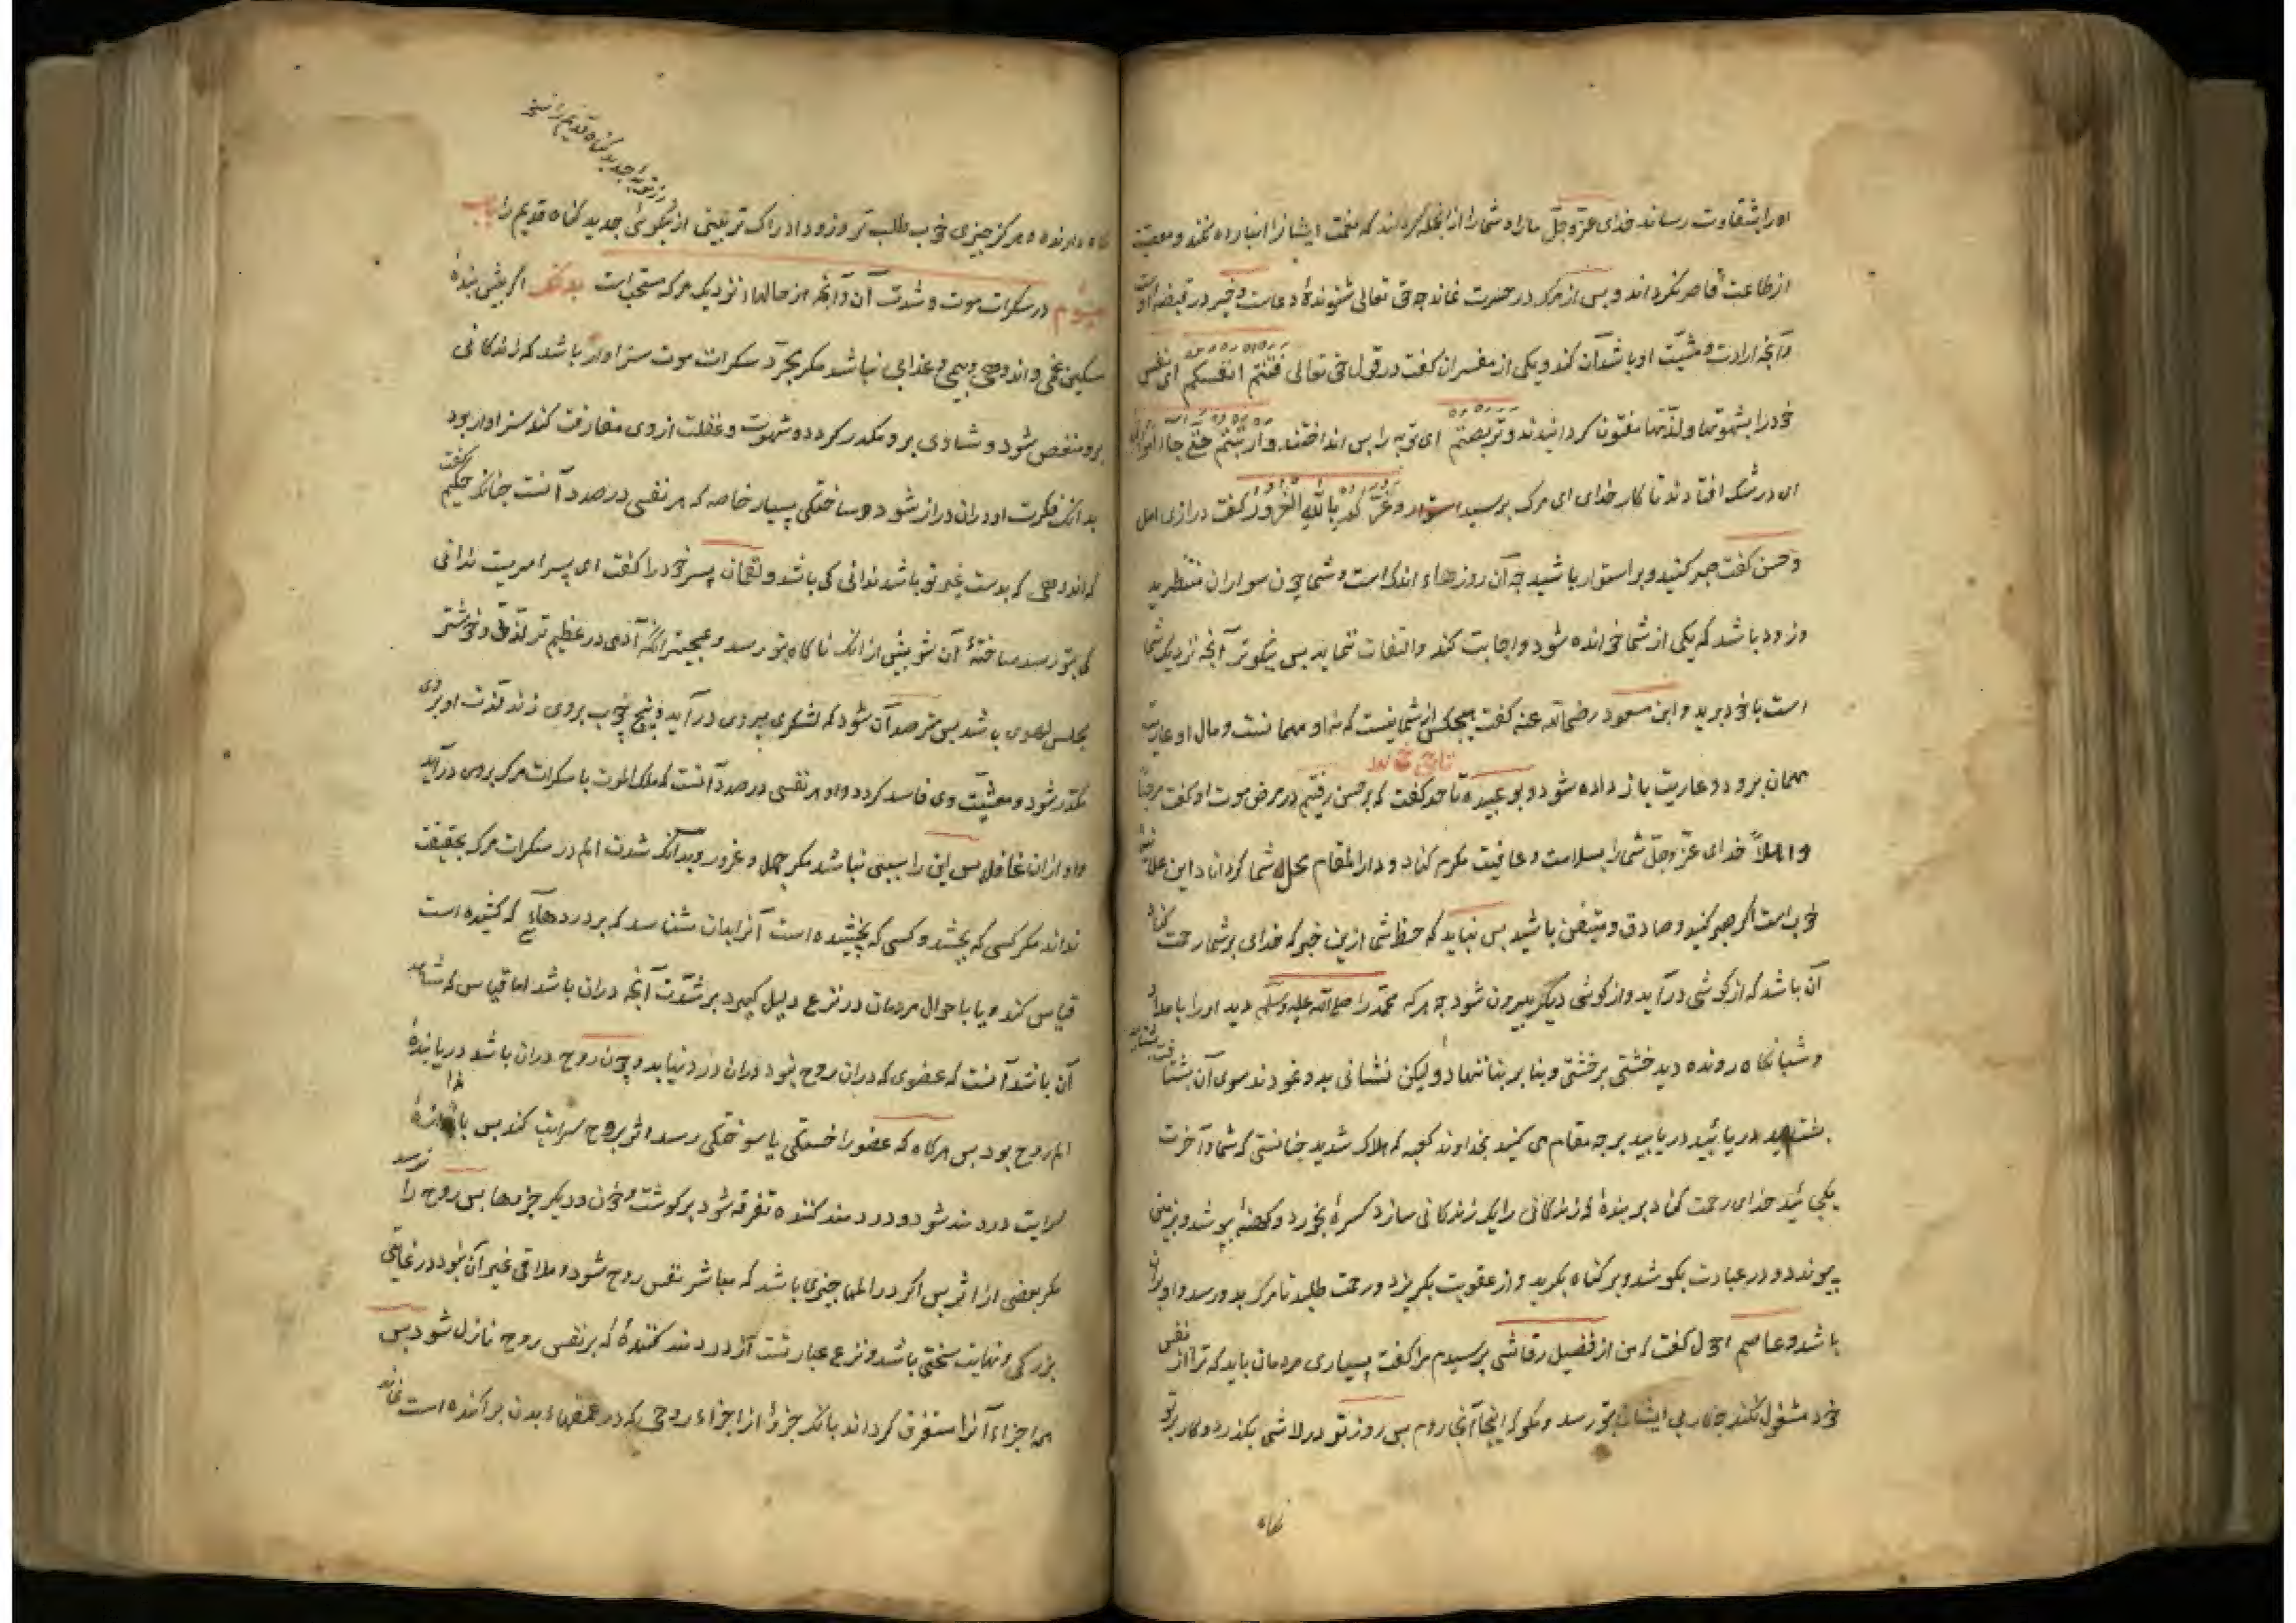 او را بشقاوت رساند خدای عزوجل ما را و شما را از انجمله کرداند که نعمت ایشانرا انباز ده نکند و معصیت
از طاعت قاصر نکرداند و بس از مرک در حسرت نماند چه حق تعالی شنوندهٔ دعاست و خیر در قبضه او است
و آنچه ارادت و مشیت او باشد آن کند و یکی از مفسران کفت در قول حق تعالی فتنتم انفسکم ای نفس
خود را بشهوتها و لذتها مفتون کردانیدند وتربصتم ای توبه را بس انداختند وارتبتم حتی جاء امر الله
ای در شک افتادند تا کار خدای ای مرک برسید وغرکم بالله الغرور کفت درازی امل
و حسن کفت صبر کنید و بر استوار باشید چه آن روزهاء اندک است و شما چون سواران منتظرید
و زود باشد که یکی از شما خوانده شود و اجابت کند و التفات ننماید بس نیکوتر آنچه نزدیک شما
است با خود برید و ابن مسعود رضی الله عنه کفت هیچکس از شما نیست که نه او مهمانست و مال او عاریت
مهمان برود و عاریت باز داده شود و بو عبیده تاجد کفت که بر حسن رفتیم در مرض موت او کفت مرحبا
واهلا خدای عزوجل شما را بسلامت و عافیت مکرم کناد و دار المقام محل شما کرداناد این علانیه
خوب است اکر صبر کنید و صادق و متیقن باشید بس نباید که حظ شما ازین خبر که خدای بر شما رحمت کناد
آن باشد که از کوشی درآید و از کوشی دیکر بیرون شود چه هر که محمد را صلی الله علیه وسلم دید او را بامداد
و شبانکاه رونده دید خشتی بر خشتی و بنا بر بنا ننهاد ولیکن نشانی بدو نمودند سوی آن بشتافت
بشتابید دریابید دریابید بر چه مقام می کنید بخداوند کعبه که هلاک شدید چنانستی که شما و آخرت
یکجائید خدای رحمت کناد بر بندهٔ که زندکانی را یک زندکانی سازد کسرهٔ بخورد و کهنهٔ بپوشد و بزمین
پیوندد و در عبادت بکوشد و بر کناه بکرید و از عقوبت بکریزد و رحمت طلبد تا مرک بدو رسد و او بران
باشد و عاصم احول کفت که من از فضیل رقاشی برسیدم مرا کفت بسیاری مردمان باید که ترا از نفس
خود مشغول نکند چه کار بی ایشان بتو رسد و مکو که اینجا آنجا روم بس روز تو در لاشی بکذرد و کار بر تو
نکاه
نکاه دارنده و هرکز چیزی خوب طلب تر و زود ادراک تر نبینی از نیکوئی جدید کناه قدیم را باب
سیوم در سکرات موت و شدت آن و آنچه از حالها نزدیک مرک مستحب است بدانکه اکر بیش بندهٔ
مسکین غمی و اندوهی و بیمی و عذابی نباشد مکر بجرد سکرات موت سزاوار باشد که زندکانی
برو منغص شود و شادی برو مکدر کردد و شهوت و غفلت از وی مفارقت کند سزاوار بود
بدانکه فکرت او دران دراز شود و ساختکی بسیار خاصه که هر نفسی در صدد آنست چنانکه حکیم کفت
که اندوهی که بدست غیر تو باشد ندانی کی باشد و لقمان پسر خود را کفت ای پسر امریست ندانی
کی بتو رسد ساختهٔ آن شو بیش از انک ناکاه بتو رسد و عجبتر انکه آدمی در عظیم تر لذتی و خوشتر
مجلس لهوی باشد بس مترصد آن شود که لشکری بر وی در آید و پنج چوب بر وی زند لذت او بر وی
مکدر شود و معیشت وی فاسد کردد و او هر نفسی در صدد آنست که ملک الموت با سکرات مرک بر وی درآید
و او ازان غافل بس این را سببی نباشد مکر جهل و غرور و بدانکه شدت الم در سکرات مرک بحقیقت
نداند مکر کسی که بچشد و کسی که نچشیده است آنرا بدان شناسد که بر دردهائی که کشیده است
قیاس کند و یا باحوال مردمان در نزع دلیل کیرد بر شدت آنچه دران باشد اما قیاس که شاهد
آن باشد آنست که عضوی که دران روح نبود دران درد نیابد و چون روح دران باشد دریابندهٔ
الم روح بود بس هرکاه که عضو را خستکی یا سوختکی رسد اثر بروح سرایت کند بس باندازهٔ
سرایت دردمند شود و دردمند کننده تفرقه شود بر کوشت و خون و دیکر چیزها بس روح را نرسد
مکر بعضی از اثر بس اکر در المها چیزی باشد که مباشر نفس روح شود و ملاقی غیر آن نبود در غایتی
بزرکی و نهایت سختی باشد و نزع عبارتست از دردمند کنندهٔ که بر نفس روح نازل شود بس
همه اجزاء آنرا مستغرق کرداند بانکه جزؤی از اجزاء روحی که در عمقهاء بدن براکنده است نماند